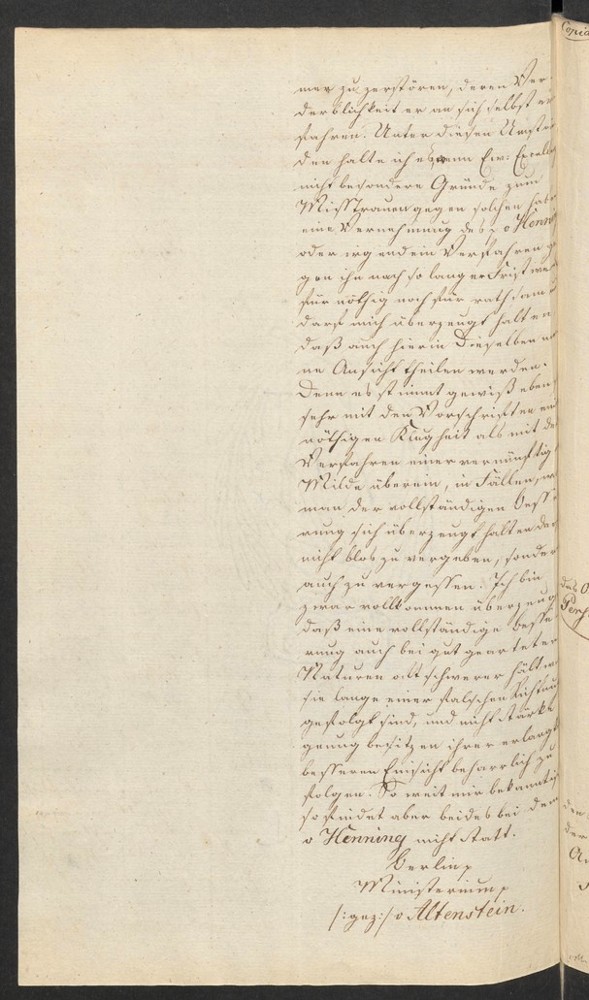 mer zu zerstören, deren Ver-
derblichkeit er an sich selbst er
fahren. Unter diesen Umstän
den halte ich wenn Ew: Excellenz
nicht besondere Gründe zum
Misstrauen gegen solchen haben
eine Vernehmung des p v Henning
oder irgend ein Verfahren ge
gen ihn nach so langer Frist weder
für nöthig noch für rathsam u
darf mich überzeugt halten
daß auch hierin Dieselben mei
ne Ansicht theilen werden.
Denn es stimmt gewiß eben
sehr mit den Vorschriften
nöthigen Klugheit als mit dem
Verfahren einer vernünftigen
Milde überein, in Fällen, wo
man der vollständigen Besse
rung sich überzeugt halten darf
nicht blos zu vergeben, sondern
auch zu vergessen. Ich bin
zwar vollkommen überzeugt
daß eine vollständige Besse
rung auch bei gut gearteten
Naturen oft schwerer hält wenn
sie lange einer falschen Richtung
gefolgt sind, und nicht Stärke
genug besitzen ihrer erlangten
besseren Einsicht beharrlich zu
folgen. So weit mir bekannt ist
so findet aber beides bei dem
v Henning nicht statt.
Berlin p
Ministerium p
/:gez:/ v Altenstein.
Copia
des